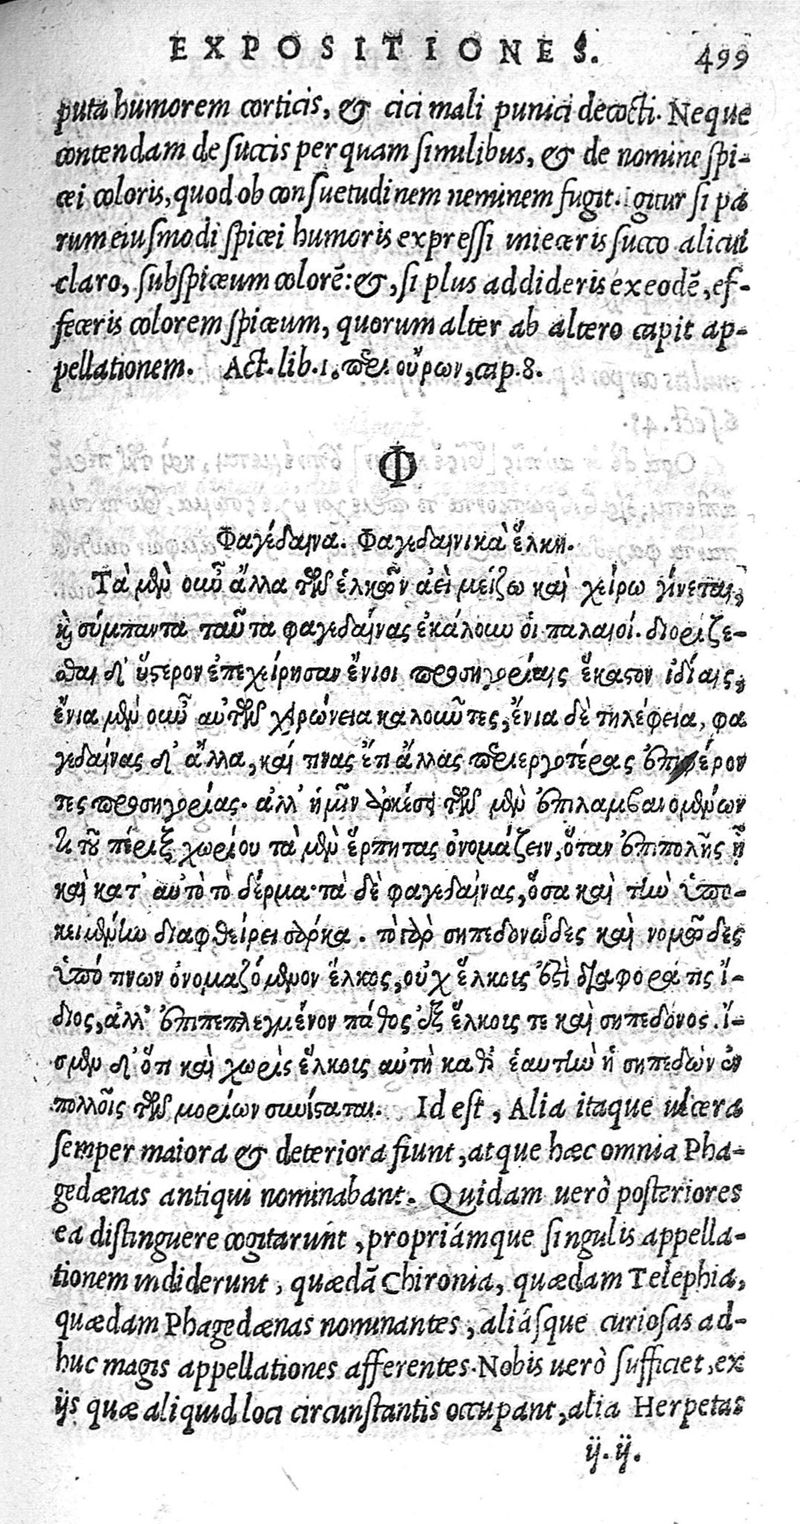 EXPOSITIONES. 499
puta humorem corticis, & cici mali punici decocti. Neque
contendam de succis perquam similibus, & de nomine spi-
cei coloris, quod ob consuetudinem neminem fugit. Igitur si pa
rum eiusmodi spicei humoris expressi inieceris succo alicui
claro, subspiceum colorē: &, si plus addideris ex eodē, ef-
feceris colorem spiceum, quorum alter ab altero capit ap-
pellationem. Act. lib. 1. περὶ οὔρων, cap. 8.
Φ
Φαγέδαινα. Φαγεδαινικὰ ἕλκη.
Τὰ μὲν οὖν ἄλλα τῶν ἑλκῶν ἀεὶ μείζω καὶ χείρω γίνεται,
καὶ σύμπαντα ταῦτα φαγεδαίνας ἐκάλουν οἱ παλαιοί. διορίζε-
σθαι δ' ὕστερον ἐπεχείρησαν ἔνιοι προσηγορίαις ἕκαστον ἰδίαις,
ἔνια μὲν οὖν αὐτῶν χειρώνεια καλοῦντες, ἔνια δὲ τηλέφεια, φα
γεδαίνας δ' ἄλλα, καί τινας ἔτι ἄλλας περιεργοτέρας ἐπιφέρον
τες προσηγορίας. ἀλλ' ἡμῖν ἀρκέσει τῶν μὲν ἐπιλαμβανομένων
τι τοῦ πέριξ χωρίου τὰ μὲν ἕρπητας ὀνομάζειν, ὅταν ἐπιπολῆς ᾖ
καὶ κατ' αὐτὸ τὸ δέρμα· τὰ δὲ φαγεδαίνας, ὅσα καὶ τὴν ὑπο-
κειμένην διαφθείρει σάρκα. τὸ γὰρ σηπεδονῶδες καὶ νομῶδες
ὑπό τινων ὀνομαζόμενον ἕλκος, οὐχ ἕλκους ἐστὶ διαφορά τις ἴ-
διος, ἀλλ' ἐπιπεπλεγμένον πάθος ἐξ ἕλκους τε καὶ σηπεδόνος. ἴ-
σμεν δ' ὅτι καὶ χωρὶς ἕλκους αὐτὴ καθ' ἑαυτὴν ἡ σηπεδὼν ἐν
πολλοῖς τῶν μορίων συνίσταται. Id est, Alia itaque ulcera
semper maiora & deteriora fiunt, atque hæc omnia Pha-
gedænas antiqui nominabant. Quidam uerò posteriores
ea distinguere cogitarunt, propriámque singulis appella-
tionem indiderunt, quædā Chironia, quædam Telephia,
quædam Phagedænas nominantes, aliásque curiosas ad-
huc magis appellationes afferentes. Nobis uerò sufficiet, ex
ijs quæ aliquid loci circunstantis occupant, alia Herpetas
ij. ij.